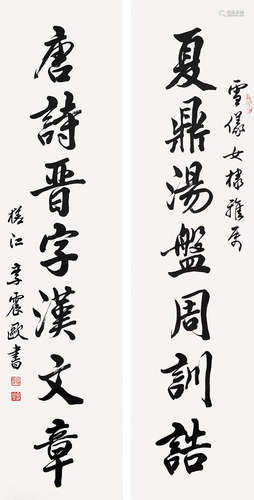 雪儀女棣雅屬
夏鼎湯盤周訓誥
唐詩晉字漢文章
李震歐書